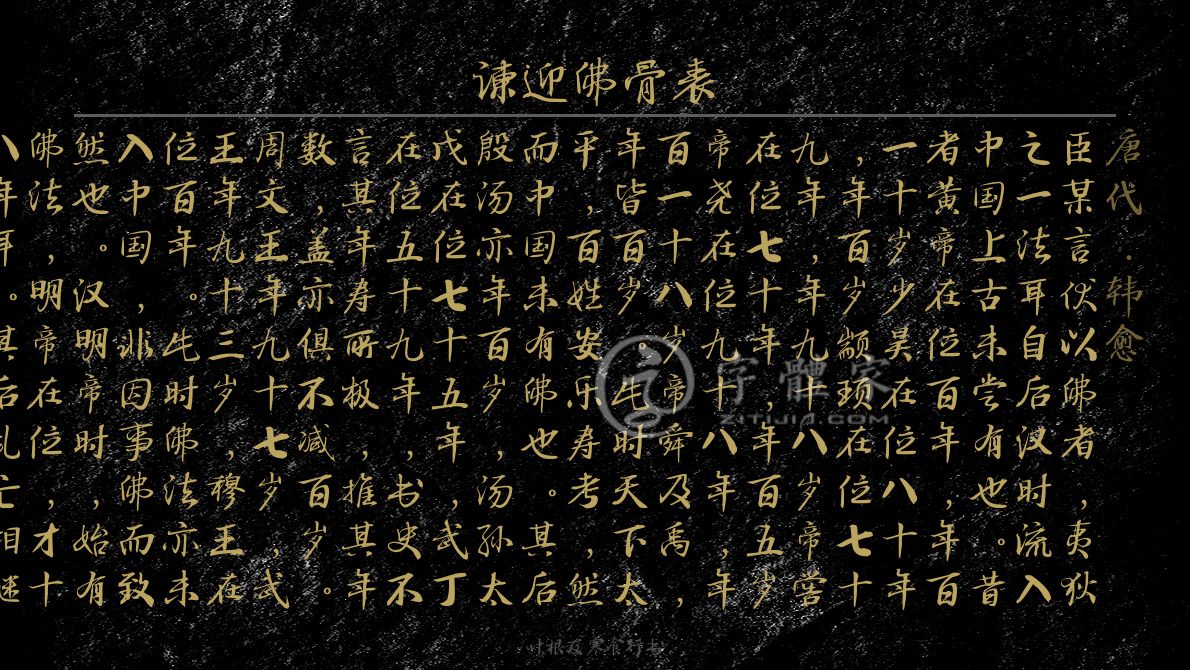 谏迎佛骨表
唐代·韩愈
臣某言伏以佛者，夷狄
之一法耳自后汉时流入
中国上古未尝有也。昔
者黄帝在位百年，年百
一十岁少昊在位八十年
，年百岁颛顼在位七十
九年，年九十八岁帝喾
在位七十年，年百五岁
帝尧在位九十八年，年
百一十八岁帝舜及禹，
年皆百岁。此时天下太
平，百姓安乐寿考，然
而中国未有佛也。其后
殷汤亦年百岁，汤孙太
戊在位七十五年，武丁
在位五十九年，书史不
言其年寿所极，推其年
数，盖亦俱不减百岁。
周文王年九十七岁，武
王年九十三岁，穆王在
位百年。此时佛法亦未
入中国，非因事佛而致
然也。汉明帝时，始有
佛法，明帝在位，才十
八年耳。其后乱亡相继
字體家
ZITIJIA.COM
叶根友寒食行书